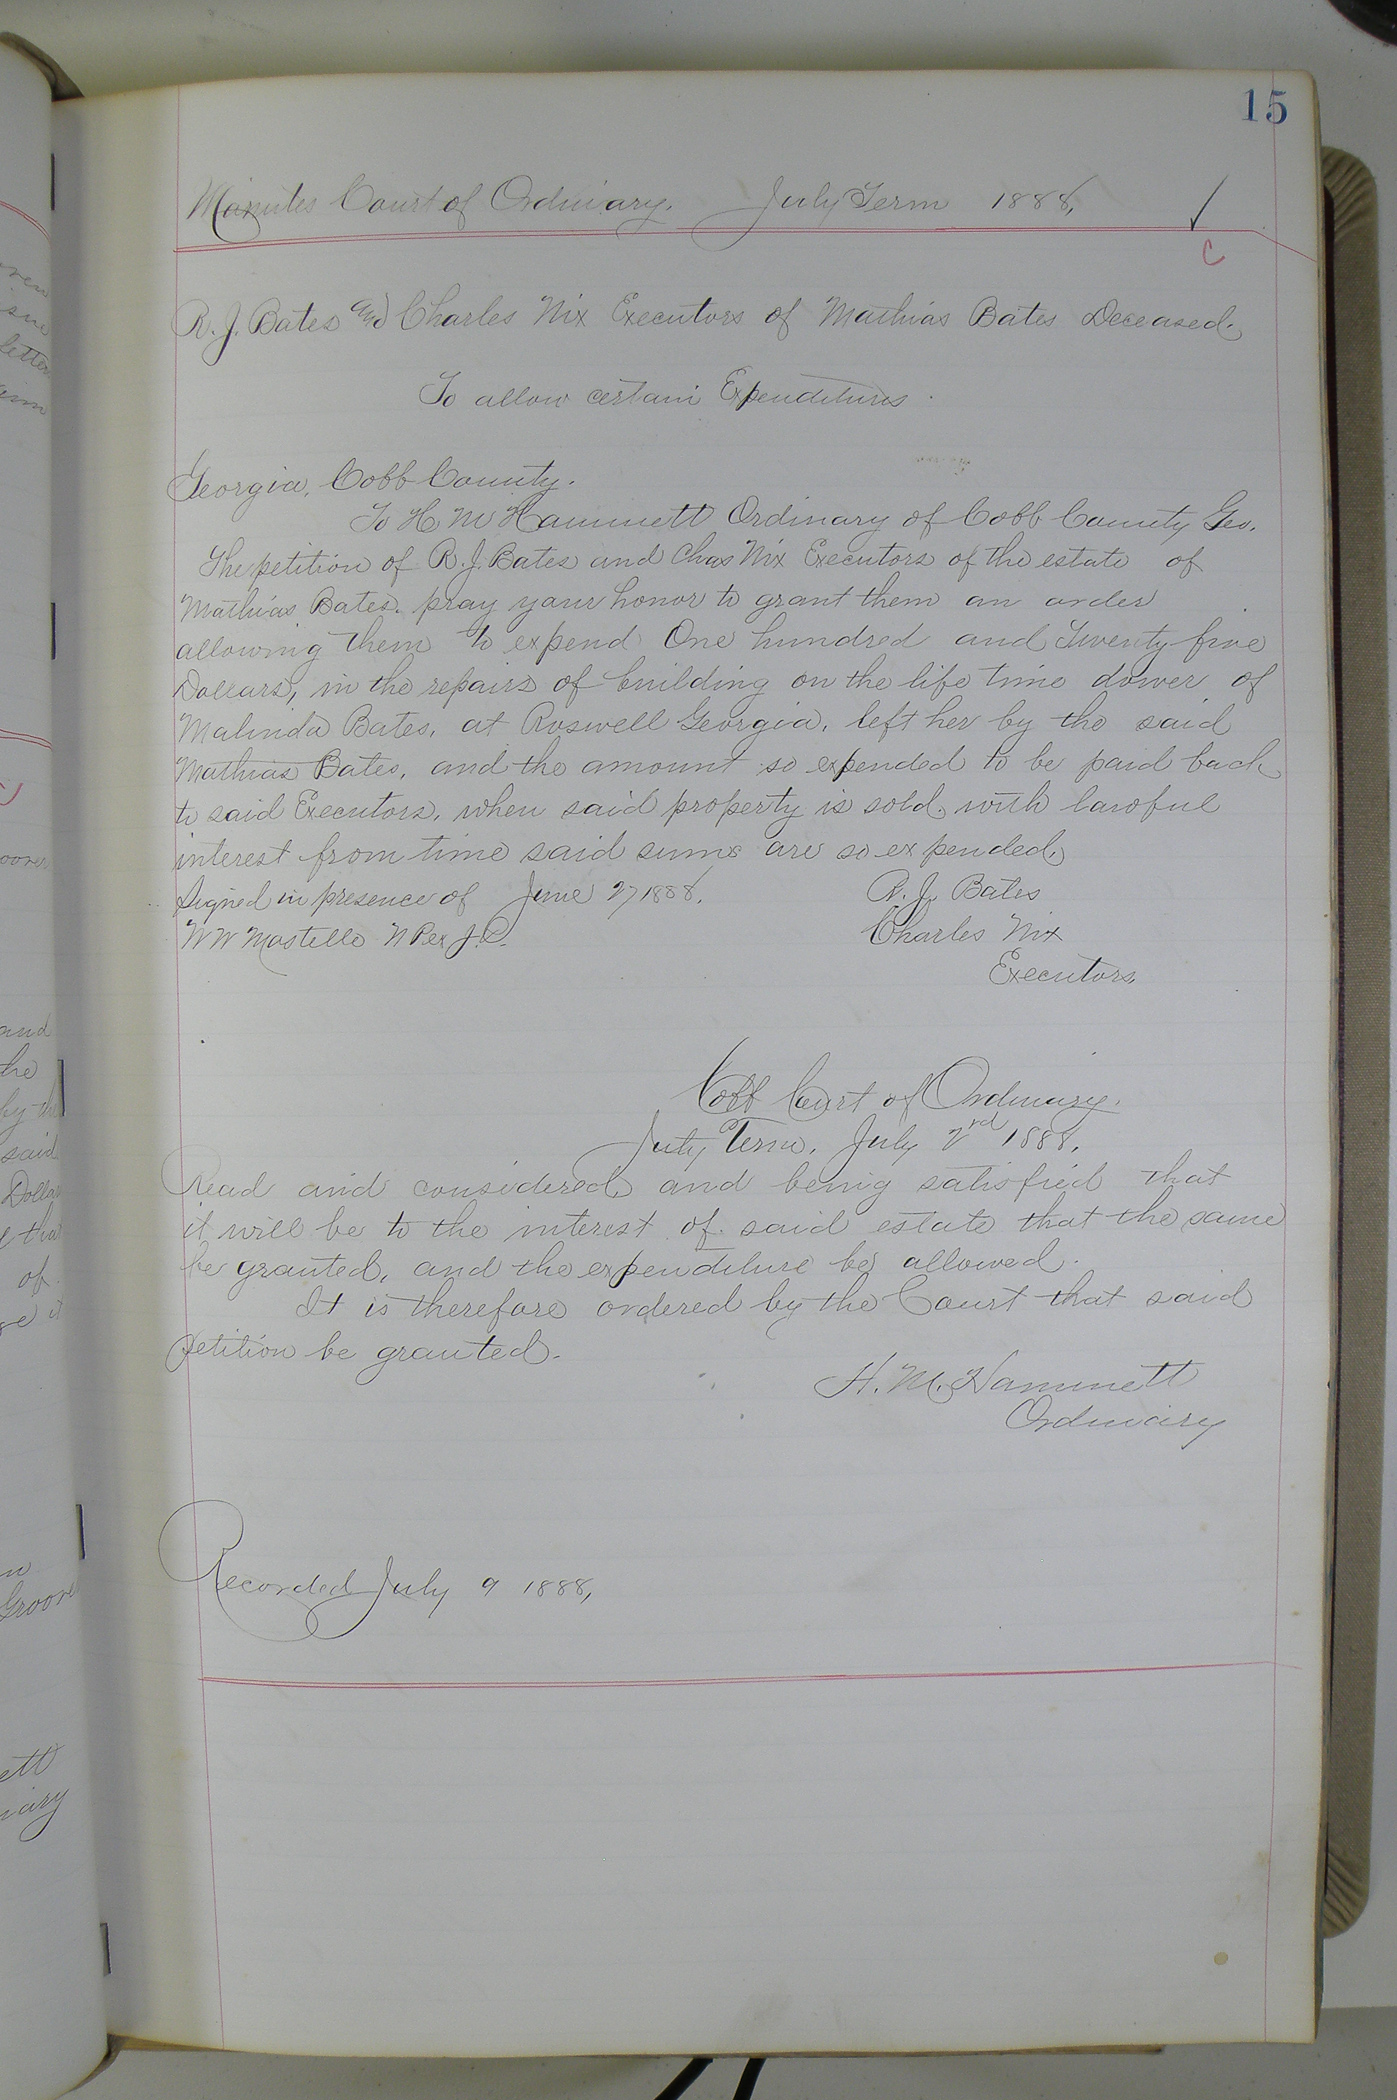 15
Minutes Court of Ordinary. July Term 1888,
C
R. J. Bates and Charles Nix Executors of Mathias Bates Deceased.
To allow certain Expenditures.
Georgia, Cobb County.
To H M Hammett Ordinary of Cobb County Geo.
The petition of R. J. Bates and Chas Nix Executors of the estate of
Mathias Bates. pray your honor to grant them an order
allowing them to expend One hundred and Twenty five
Dollars, in the repairs of building on the life time dower of
Malinda Bates, at Roswell Georgia, left her by the said
Mathias Bates, and the amount so expended to be paid back
to said Executors, when said property is sold, with lawful
interest from time said sums are so expended.
Signed in presence of June 27 1888. R. J. Bates
W W Mostello N P ex J. P. Charles Nix
Executors,
Cobb Court of Ordinary.
July Term, July 2nd 1888,
Read and considered, and being satisfied that
it will be to the interest of said estate that the same
be granted, and the expenditure be allowed.
It is therefore ordered by the Court that said
petition be granted.
H. M. Hammett
Ordinary
Recorded July 9 1888,
and
the
by the
said
of
ett